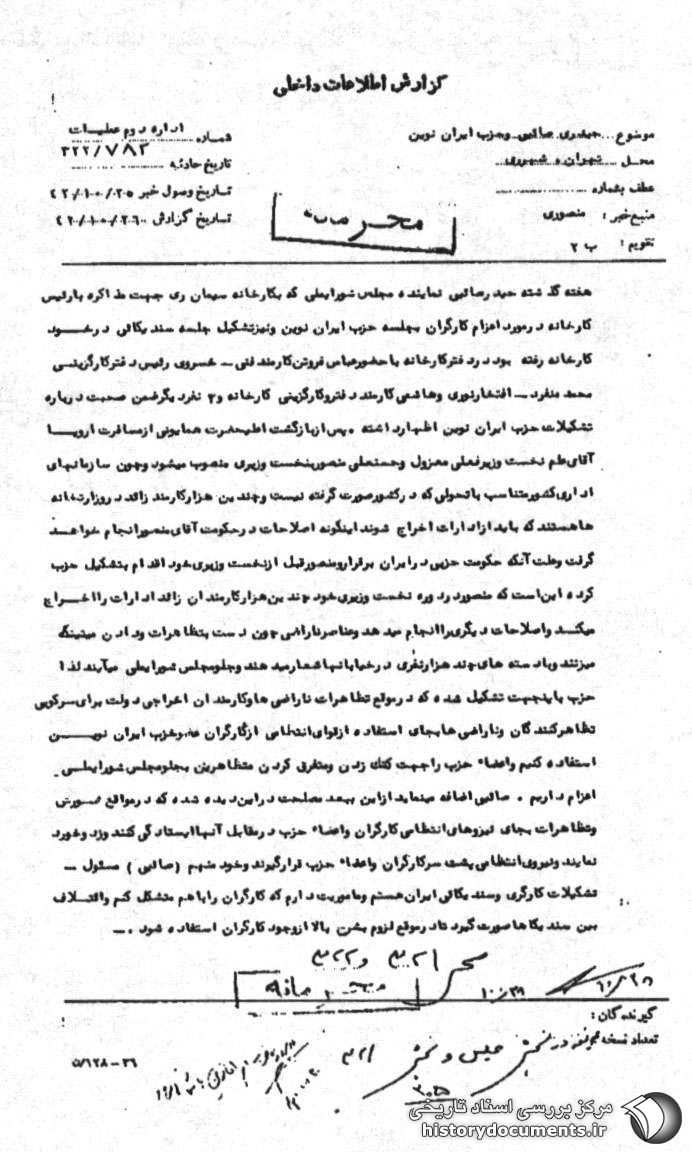 گزارش اطلاعات داخلی
موضوع ... حیدری صائبی وحزب ایران نوین
محل ... تهران و شهرری
عطف بشماره
منبع خبر : منصوری
تقویم : ب ۲
اداره دوم عملیات
شماره ۳۲۲/۷۸۲
تاریخ حادثه
تاریخ وصول خبر ۴۲/۱۰/۲۵
تاریخ گزارش ۴۲/۱۰/۲۶
محرمانه
هفته گذشته حیدرصائبی نماینده مجلس شورایملی که بکارخانه سیمان ری جهت مذاکره بارئیس
کارخانه درمورد اعزام کارگران بجلسه حزب ایران نوین ونیزتشکیل جلسه سندیکائی درخــود
کارخانه رفته بود دردفترکارخانه باحضورعباس فروتن کارمند فنی – خسروی رئیس دفترکارگزینــی
محمد منفرد – افتخارنوری وهاشمی کارمند دفتروکارگزینی کارخانه و۳ نفردیگرضمن صحبت درباره
تشکیلات حزب ایران نوین اظهارداشته پس ازبازگشت اعلیحضرت همایونی ازمسافرت اروپــا
آقای علم نخست وزیرفعلی معزول وحسنعلی منصوربنخست وزیری منصوب میشود وچون سازمانهای
اداری کشورمتناسب باتحولی که درکشورصورت گرفته نیست وچندین هزارکارمند زائد دروزارتخانه
هاهستند که باید ازادارات اخراج شوند اینگونه اصلاحات درحکومت آقای منصورانجام خواهــد
گرفت وعلت آنکه حکومت حزبی درایران برقرارومنصورقبل ازنخست وزیری خود اقدام بتشکیل حزب
کرده این است که منصوردردوره نخست وزیری خود چندین هزارکارمندان زائد ادارات رااخــراج
میکنــد واصلاحات دیگری راانجام میدهد وعناصرناراضی چون دست بتظاهرات ودادن میتینگ
میزنند وبادسته های چند هزارنفری درخیابانهاشعارمیدهند وجلومجلس شورایملی میآیند لذا
حزب باینجهت تشکیل شده که درموقع تظاهرات ناراضی هاوکارمندان اخراجی دولت برای سرکوبی
تظاهرکنندگان وناراضی هابجای استفاده ازقوای انتظامی ازکارگران عضوحزب ایران نویــــن
استفاده کنیم واعضاء حزب راجهت کتك زدن ومتفرق کردن متظاهرین بجلومجلس شورایملــی
اعزام داریم . صائبی اضافه مینماید ازاین ببعد مصلحت دراین دیده شده که درمواقع شــورش
وتظاهرات بجای نیروهای انتظامی کارگران واعضاء حزب درمقابل آنهاایستادگی کنند وزد وخورد
نمایند ونیروی انتظامی پشت سرکارگران واعضاء حزب قرارگیرند وخود منهم (صائبی) مسئول –
تشکیلات کارگری وسندیکائی ایران هستم وماموریت دارم که کارگران راباهم متشکل کنم وائتــلاف
بین سندیکاهاصورت گیرد تادرموقع لزوم بشرح بالا ازوجود کارگران استفاده شود . –
۳۲۱ و ۳۲۲
محرمانه
۱۰/۲۹
گیرندگان :
تعداد نسخه
بخش ۳۲۱
۳۰۵
۳۶-۵/۶۲۸
مرکز بررسی اسناد تاریخی
historydocuments.ir